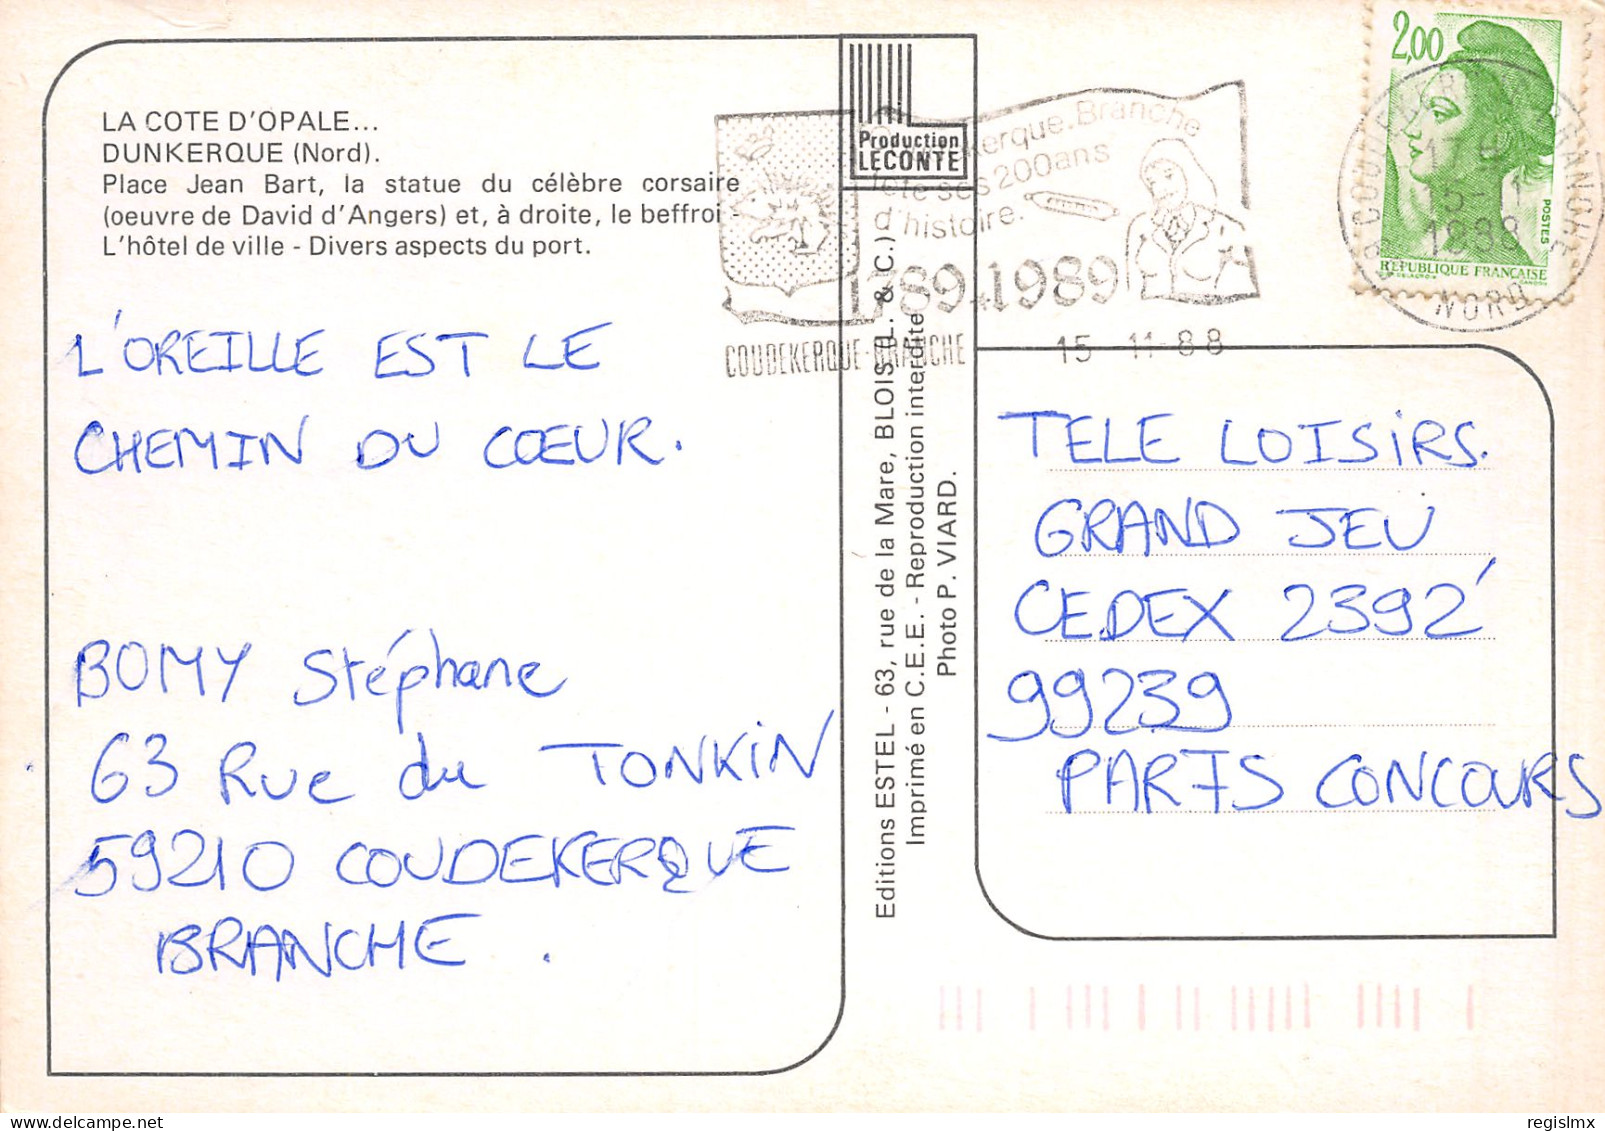 LA COTE D'OPALE...
DUNKERQUE (Nord).
Place Jean Bart, la statue du célèbre corsaire
(oeuvre de David d'Angers) et, à droite, le beffroi -
L'hôtel de ville - Divers aspects du port.
L'OREILLE EST LE
CHEMIN DU CŒUR.
BOMY Stéphane
63 Rue du TONKIN
59210 COUDEKERQUE
BRANCHE.
Production
LECONTE
Editions ESTEL - 63, rue de la Mare, BLOIS (L. & C.)
Imprimé en C.E.E. - Reproduction interdite
Photo P. VIARD.
Branche
fête ses 200ans
d'histoire.
1789.1989
COUDEKERQUE-BRANCHE
15 11-88
2,00
POSTES
REPUBLIQUE FRANÇAISE
1988
NORD
TELE LOISIRS.
GRAND JEU
CEDEX 2392
99239
PARIS CONCOURS
regislmx